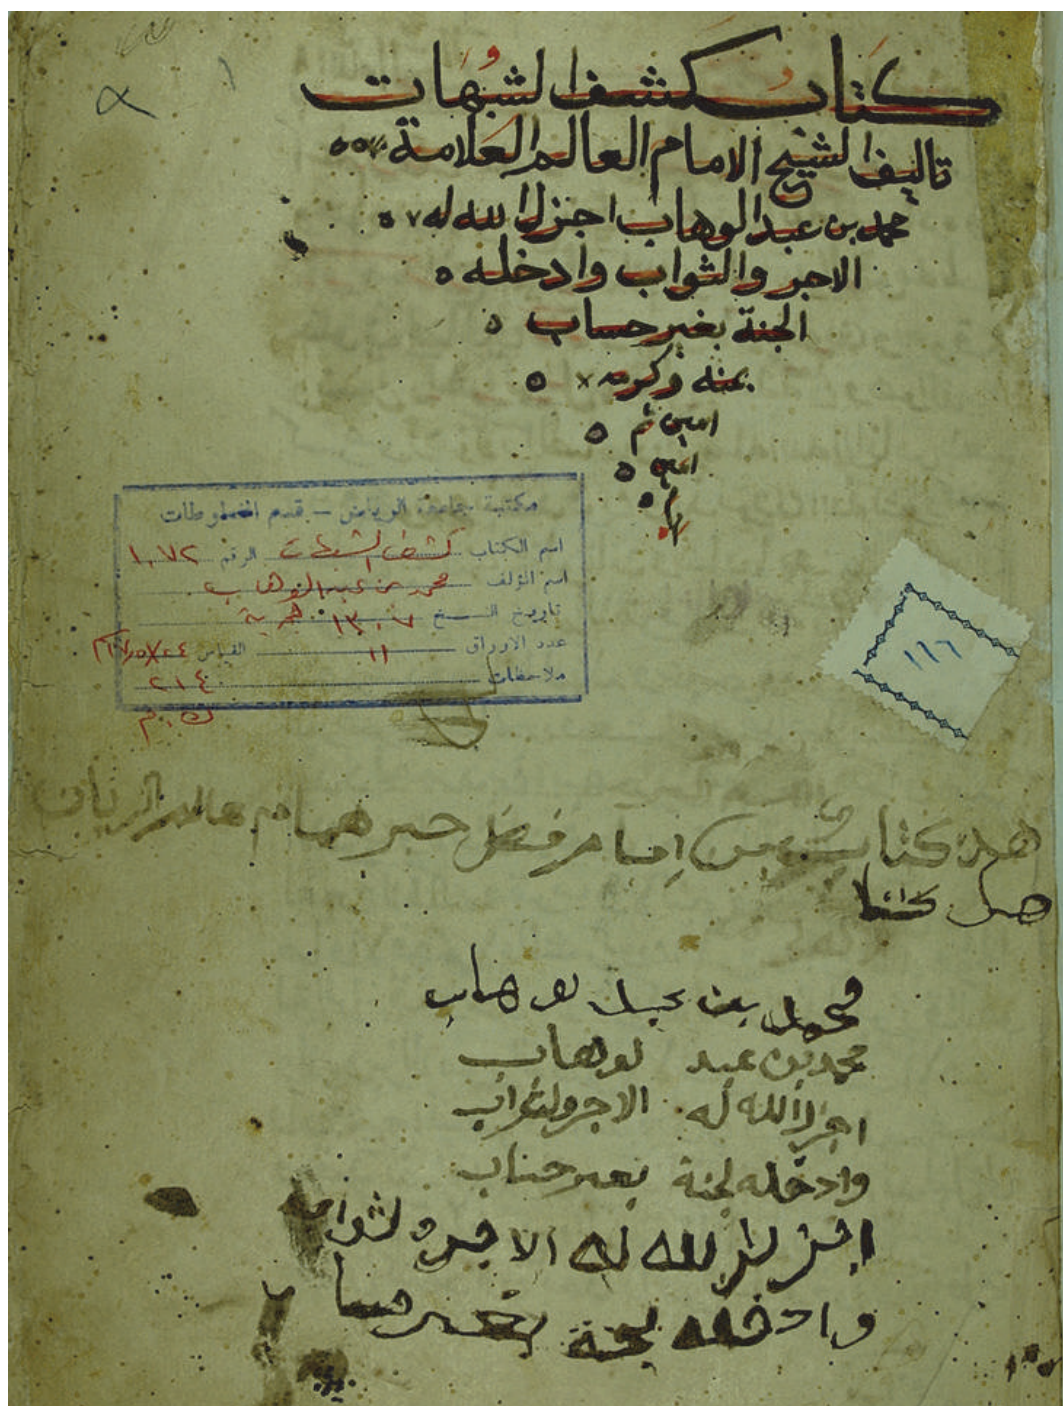 كتاب كشف الشبهات
تاليف الشيخ الامام العالم العلامة
محمد بن عبد الوهاب اجزل الله له
الاجر والثواب وادخله
الجنة بغير حساب
بمنه وكرمه
امين ثم
امين
مكتبة جامعة الرياض – قسم المخطوطات
اسم الكتاب كشف الشبهات الرقم ١٠٧٢
اسم المؤلف محمد بن عبد الوهاب
تاريخ النسخ ١٣٠٧ هجرية
عدد الاوراق ١١ القياس
ملاحظات ٢١٤
١٦٦
هذ كتاب
هذ كتا
محمد بن عبد لوهاب
محمد بن عبد لوهاب
اجزلا الله له الاجر ولثواب
وادخله لجنة بغير حساب
اجزل لله له الاجر ولثواب
وادخله لجنة بغير حسا